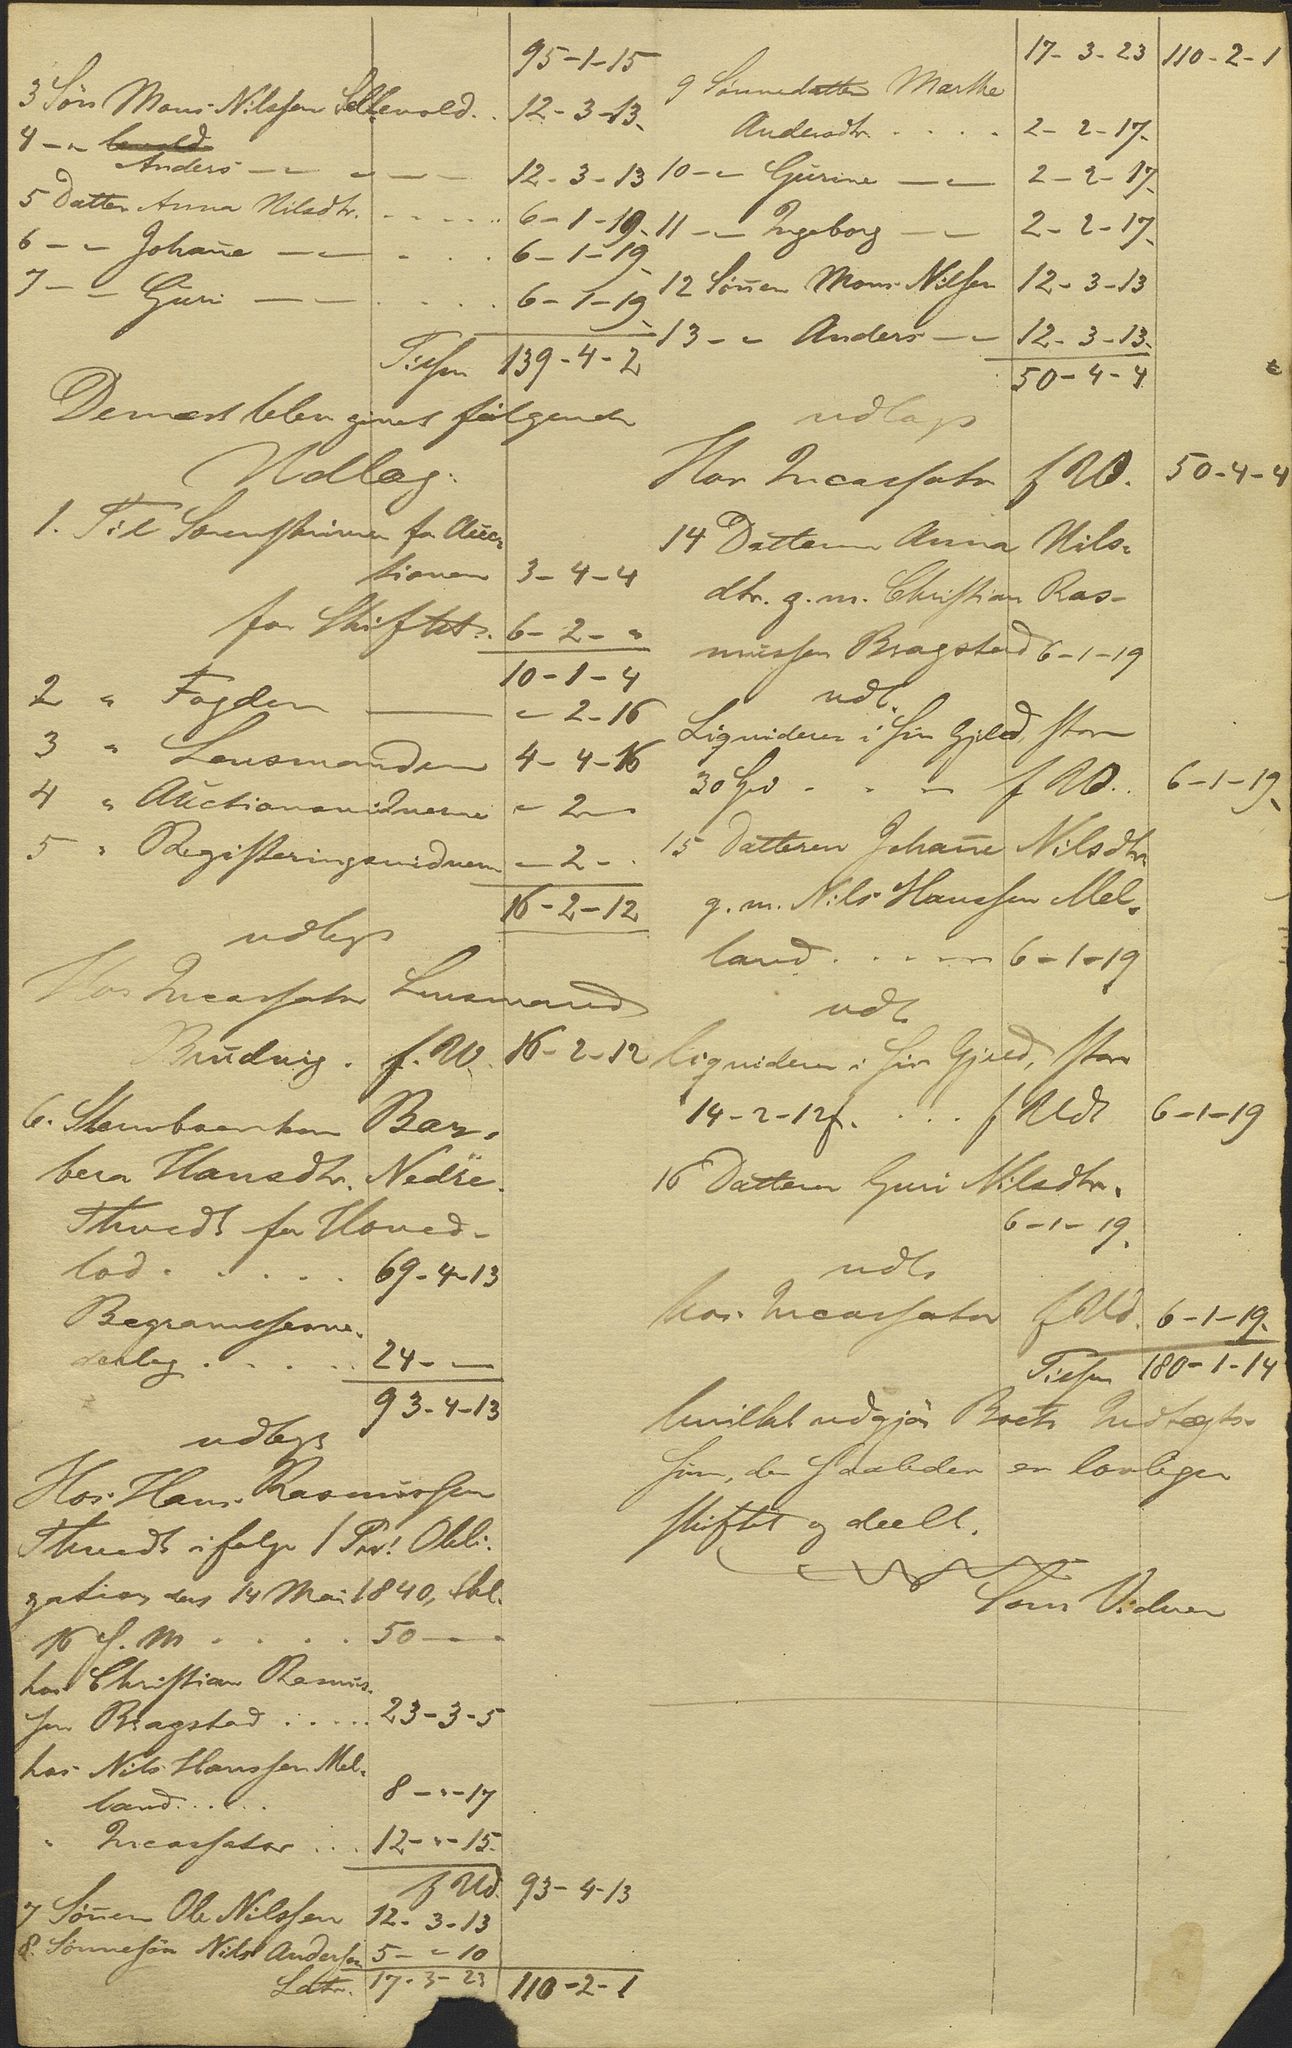 95-1-15
3 Søn Mons Nilssen Sellevold . . 12-3-13
4 -"- Anders -"- -"- 12-3-13
5 Datter Anna Nilsdtr. . . . . . 6-1-19
6 -"- Johañe -"- . . . 6-1-19
7 -"- Guri -"- . . . . 6-1-19
Tilsm 139-4-2
Dernæst blev givet følgende
Udlæg:
1. Til Sorenskriveren for Auc-
tionen 3-4-4
for Skiftet . . 6-2-"
10-1-4
2 " Fogden — "-2-16
3 " Lensmanden 4-4-16
4 " Auctionsvidnerne "-2-"
5 " Registeringsvidnerne "-2-"
16-2-12
udlegs
Hos Incassator Lensmand
Brudvig . f. Ud. 16-2-12
6. Stervboenken Bar-
bera Hansdtr. Nedre
Thvedt for Hoved-
lod . . . . . 69-4-13
Begravelsesve-
derlag . . . . . 24-"-"
93-4-13
udlegs
Hos Hans Rasmussen
Thvedt ifølge 1 Pr. Obli-
gation das 14 Mai 1840, thl.
16 s. M . . . . 50-"-"
hos Christian Rasmus-
sen Bragstad . . . . . 23-3-5
hos Nils Hanssen Mel-
land . . . . . 8-"-17
" Incassator . . . 12-"-15
f Ud. 93-4-13
7 Søñen Ole Nilssen 12-3-13
8. Sønnesøn Nils Anderssen 5-"-10
Latr. 17-3-23 110-2-1
17-3-23 110-2-1
9 Sønnedatter Marthe
Andersdtr. . . . . 2-2-17
10 -"- Gurine -"- 2-2-17
11 -"- Ingeborg -"- 2-2-17
12 Søñen Mons Nilsen 12-3-13
13 -"- Anders -"- 12-3-13
50-4-4
udlægs
Hos Incassator f Ud. 50-4-4
14 Datteren Anna Nils-
dtr. g. m. Christian Ras-
mussen Bragstad 6-1-19
udl.
Liquiderer i sin Gjeld, stor
30 . . . f Ud. . 6-1-19
15 Datteren Johañe Nilsdtr.
g. m. Nils Hanssen Mel-
land . . . . . 6-1-19
udl.
Liquiderer i sin Gjeld, stor
14-2-12 s. . . . f Udl 6-1-19
16 Datteren Guri Nilsdtr.
6-1-19
udl.
hos Incassator f Ud. 6-1-19
Tilsm 180-1-14
hvilket udgjør Boets Indtægts-
sum, der saaledes er lovligen
skiftet og deelt.
Som Vidner